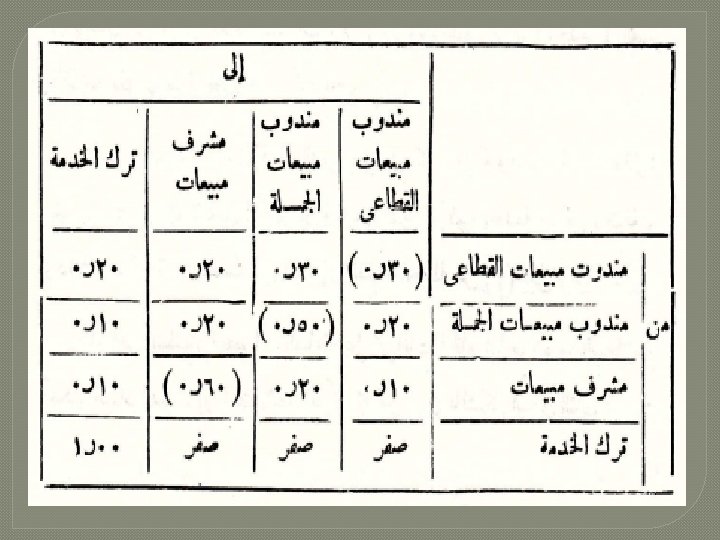 إلى
مندوب مبيعات القطاعى | مندوب مبيعات الجملة | مشرف مبيعات | ترك الخدمة
من
مندوب مبيعات القطاعى | (٠٫٣٠) | ٠٫٣٠ | ٠٫٢٠ | ٠٫٢٠
مندوب مبيعات الجملة | ٠٫٢٠ | (٠٫٥٠) | ٠٫٢٠ | ٠٫١٠
مشرف مبيعات | ٠٫١٠ | ٠٫٢٠ | (٠٫٦٠) | ٠٫١٠
ترك الخدمة | صفر | صفر | صفر | ١٫٠٠